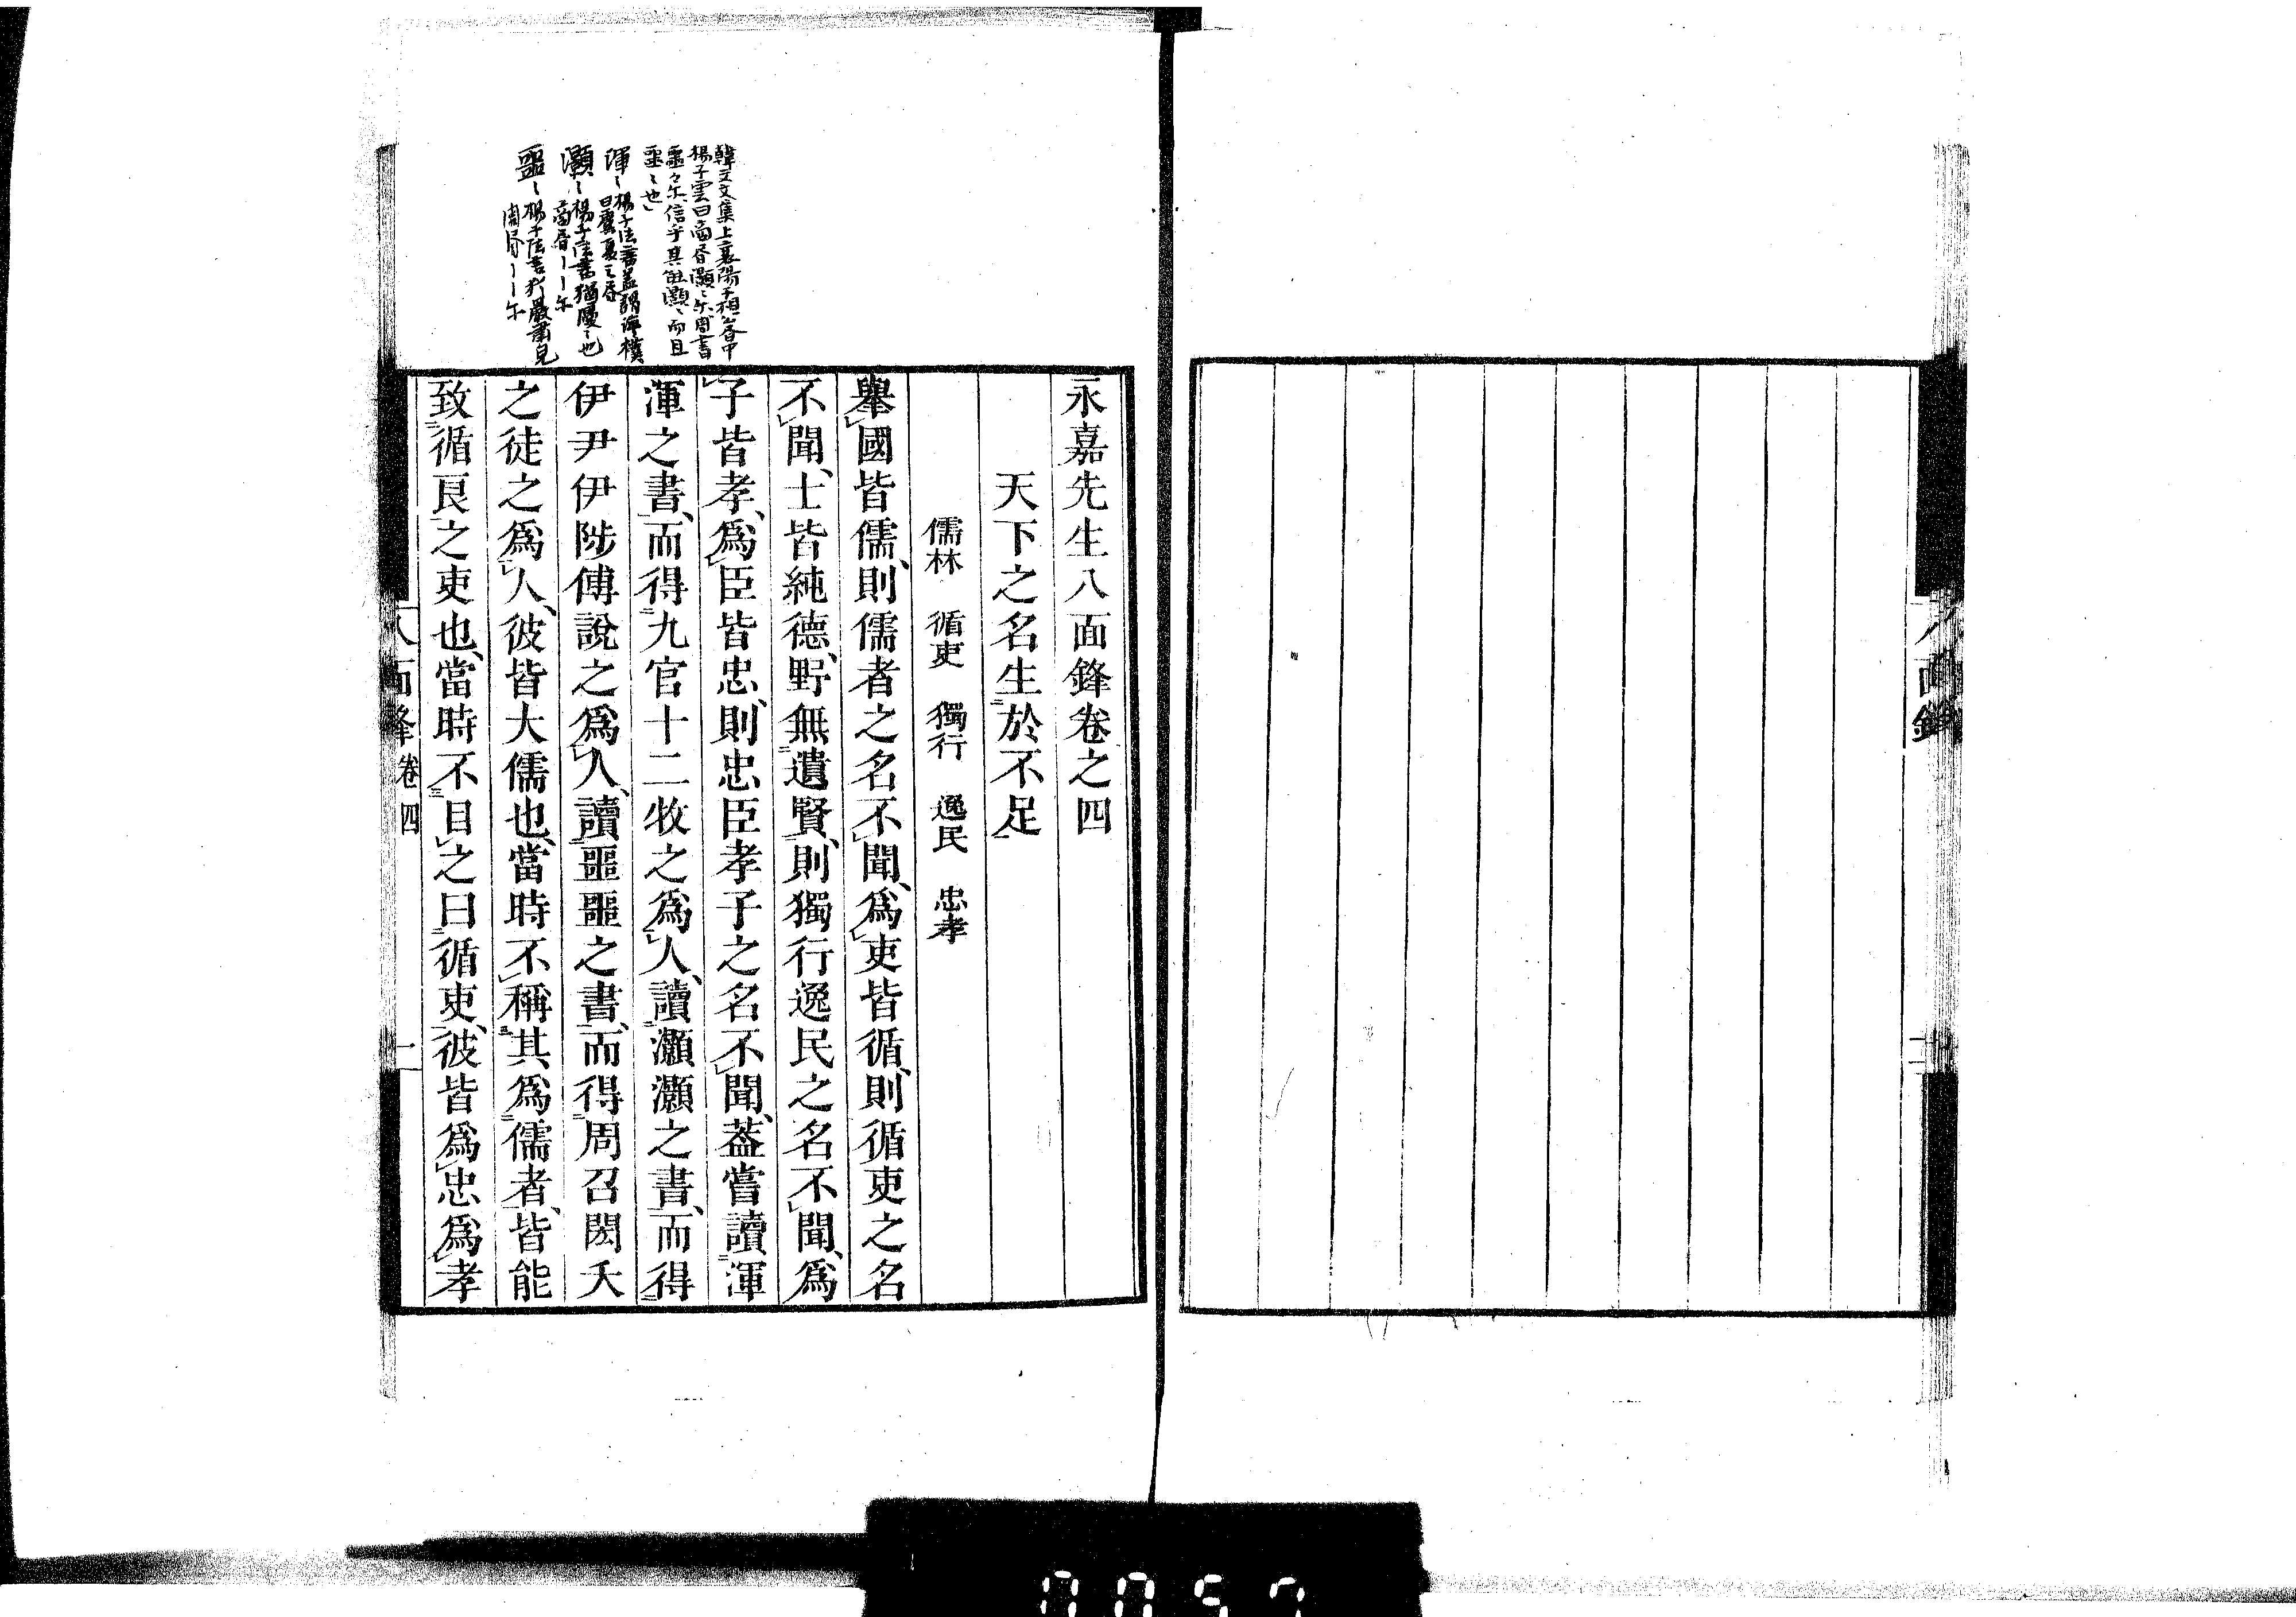 永嘉先生八面鋒卷之四
天下之名生於不足
儒林　循吏　獨行　逸民　忠孝
舉國皆儒、則儒者之名不聞、爲吏皆循、則循吏之名
不聞、士皆純德、野無遺賢、則獨行逸民之名不聞、爲
子皆孝、爲臣皆忠、則忠臣孝子之名不聞、葢嘗讀渾
渾之書、而得九官十二牧之爲人、讀灝灝之書、而得
伊尹伊陟傅說之爲人、讀噩噩之書、而得周召閎夭
之徒之爲人、彼皆大儒也、當時不稱其爲儒者、皆能
致循良之吏也、當時不目之曰循吏、彼皆爲忠爲孝
韓文文集上襄陽于相公書中
楊子雲曰商書灝〻尓周書
噩〻尓信乎其能灝〻而且
噩〻也
渾〻楊子法言葢謂渾樸
曰虞夏之書
灝〻楊子法言猶優〻也
商書〻〻尓
噩〻楊子法言〻嚴肅見
周書〻〻尓
八面鋒 卷四 一
八面鋒
0057